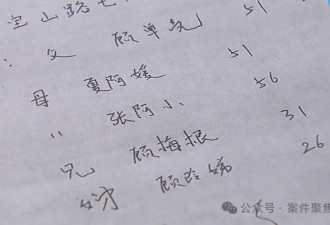 宝山路七
: 父 顾单元 51
母 夏阿媛 51
〃 张阿小 56
兄 顾梅根 31
顾 26
公众号·案件聚焦